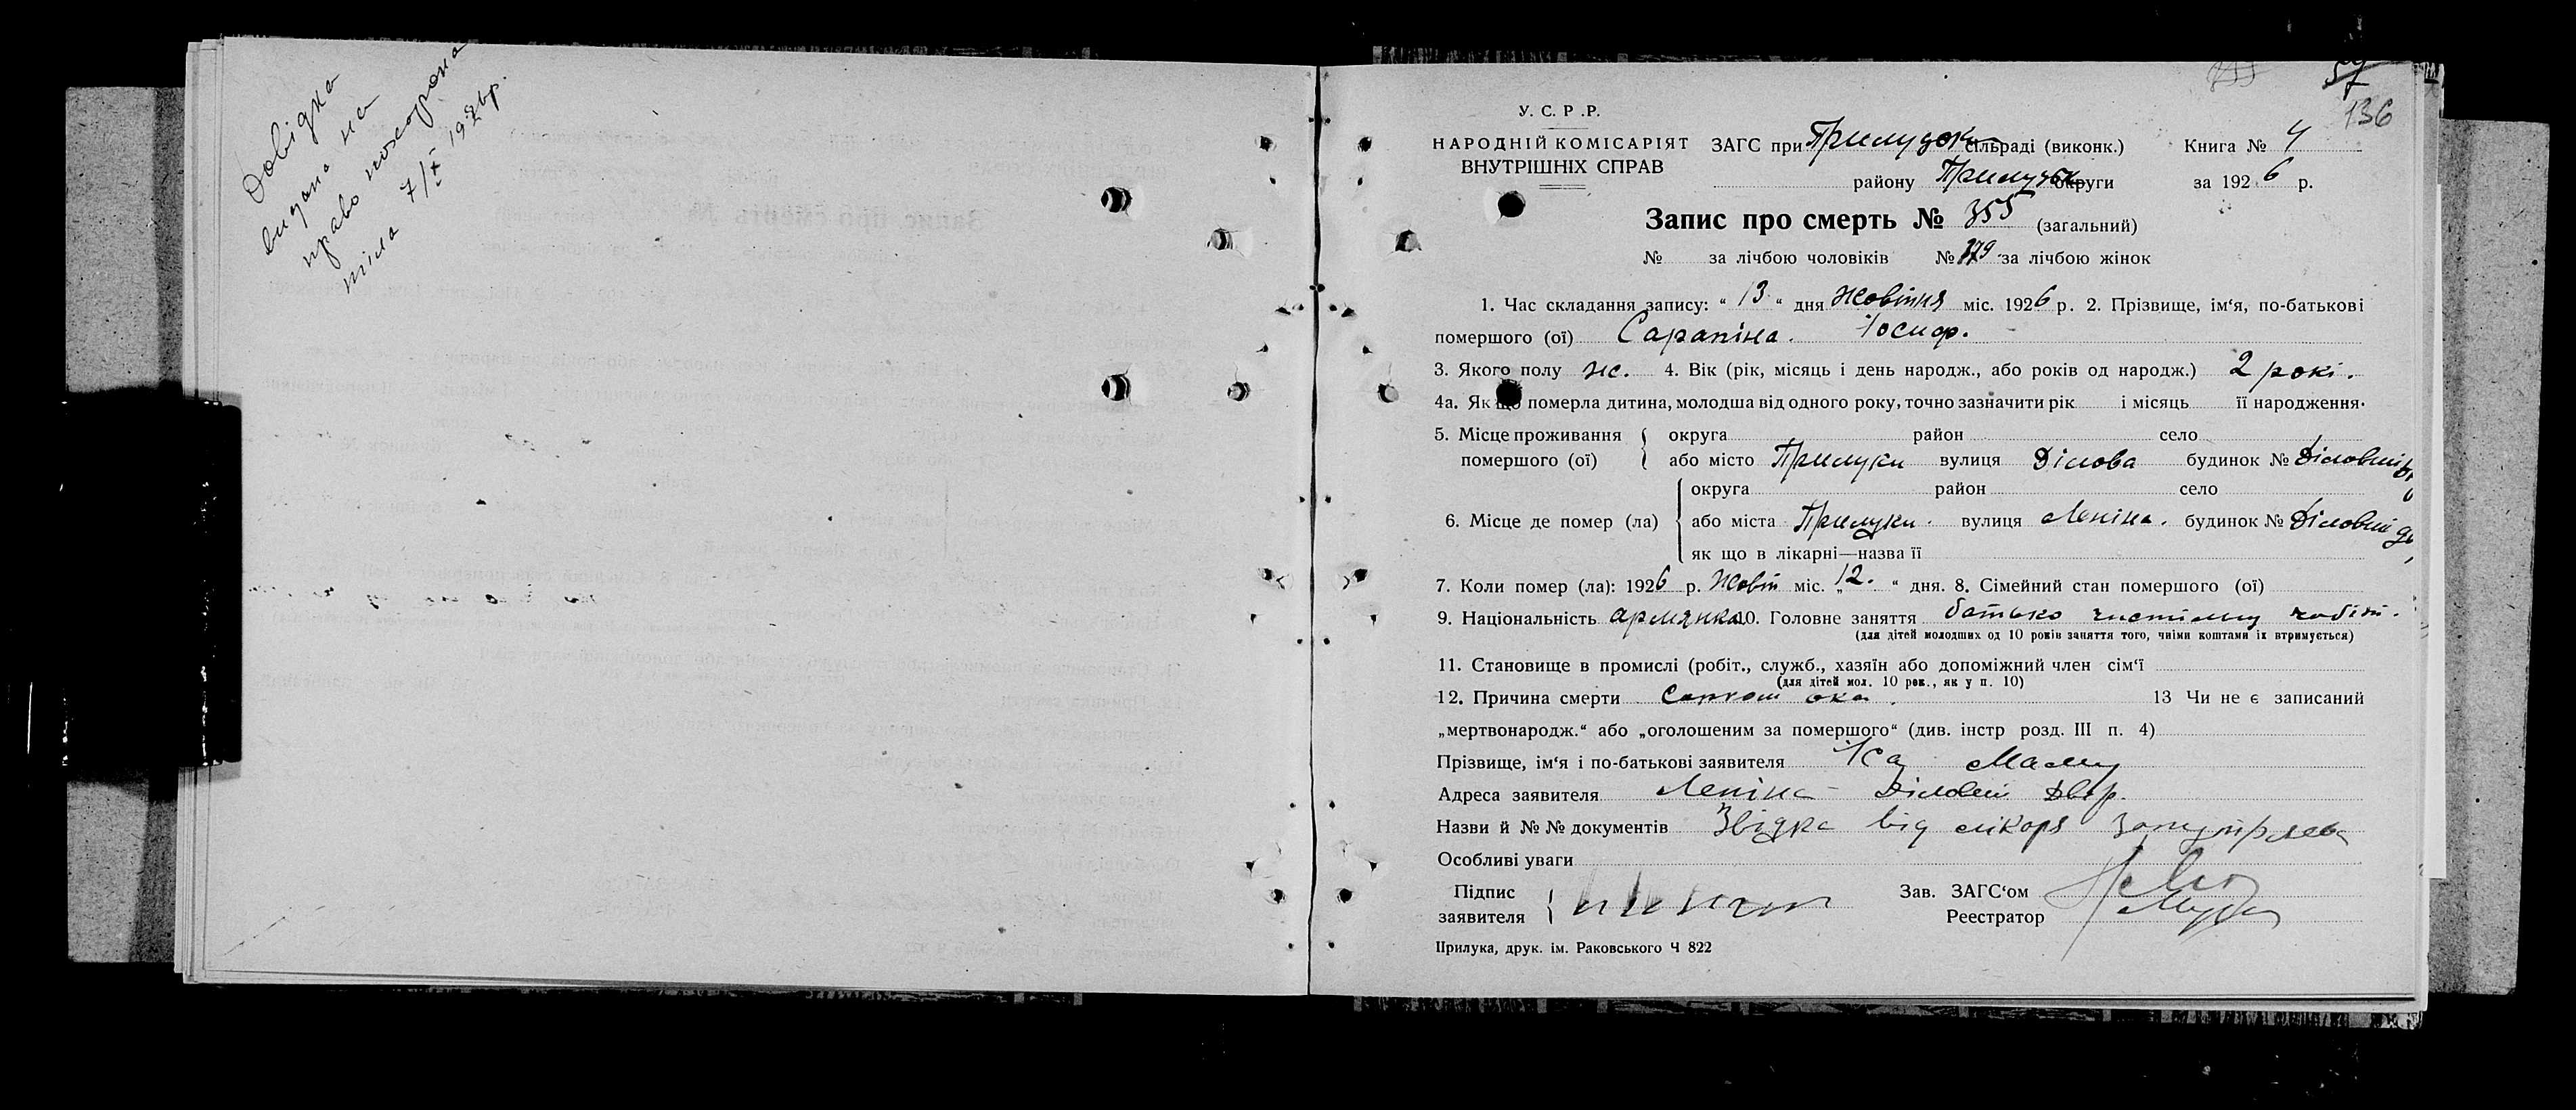 Довідка
видана на
право похорона
тіла 7/X 1926р.
136
У. С. Р .Р.
НАРОДНІЙ КОМІСАРІЯТ
ВНУТРІШНІХ СПРАВ
ЗАГС при Прилуцьк сільраді (виконк.) Книга № 4
району Прилуцьк округи за 1926 р.
Запис про смерть № 355 (загальний)
№ за лічбою чоловіків № 179 за лічбою жінок
1. Час складання запису: “ 13 “ дня Жовтня міс. 1926 р. 2. Прізвище, ім‘я, по-батькові
помершого (ої) Сарапіна. Іосиф.
3. Якого полу ж. 4. Вік (рік, місяць і день народж., або років од народж.) 2 рокі.
4а. Як що померла дитина, молодша від одного року, точно зазначити рік і місяць її народження.
5. Місце проживання округа район село
помершого (ої) або місто Прилуки вулиця Ділова будинок № Діловий
округа район село
6. Місце де помер (ла) або міста Прилуки. вулиця Леніна. будинок № Діловий
як що в лікарні—назва її
7. Коли помер (ла): 1926 р. Жовт міс. „12. “ дня. 8. Сімейний стан помершого (ої)
9. Національність армянка 10. Головне заняття батько чистільщ чобіт.
(для дітей молодших од 10 років заняття того, чиїми коштами їх втримується)
11. Становище в промислі (робіт., служб., хазяїн або допоміжний член сім‘ї
(для дітей мол. 10 рок., як у п. 10)
12. Причина смерти ока. 13 Чи не є записаний
„мертвонародж.“ або „оголошеним за помершого“ (див. інстр розд. III п. 4)
Прізвище, ім‘я і по-батькові заявителя
Адреса заявителя Леніна - Діловий Двір.
Назви й №№ документів Звідка від лікаря
Особливі уваги
Підпис
заявителя
Зав. ЗАГС‘ом
Реестратор
Прилука, друк. ім. Раковського Ч 822